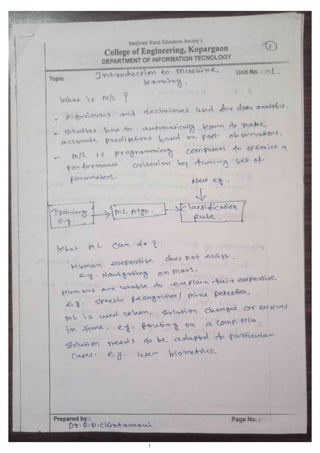 Sanjivani Rural Education Society's
College of Engineering, Kopargaon
DEPARTMENT OF INFORMATION TECNOLOGY
1
Topic Introduction to machine Unit No. : 01.
learning.
what is m/L ?
- Algorithms and techniques used for data analytics.
- Studies how to automatically learn to make
accurate predictions based on past observations.
- M/L is programming computers to optimize a
performance criterion by tuning set of
parameters.
New eg.
Training → ML Algo. → Classification
e.g. rule.
what ML can do ?
Human expertise does not exist.
e.g. Navigating on mars.
Humans are unable to explain their expertise
e.g. speech recognition / mine Detection.
ML is used when, solution changes or evolves
in time. e.g. Routing on a comp. N/w.
Solution needs to be adapted to particular
cases. e.g. user biometrics.
Prepared by : Page No. :
Dr. R. D. Chintamani
1